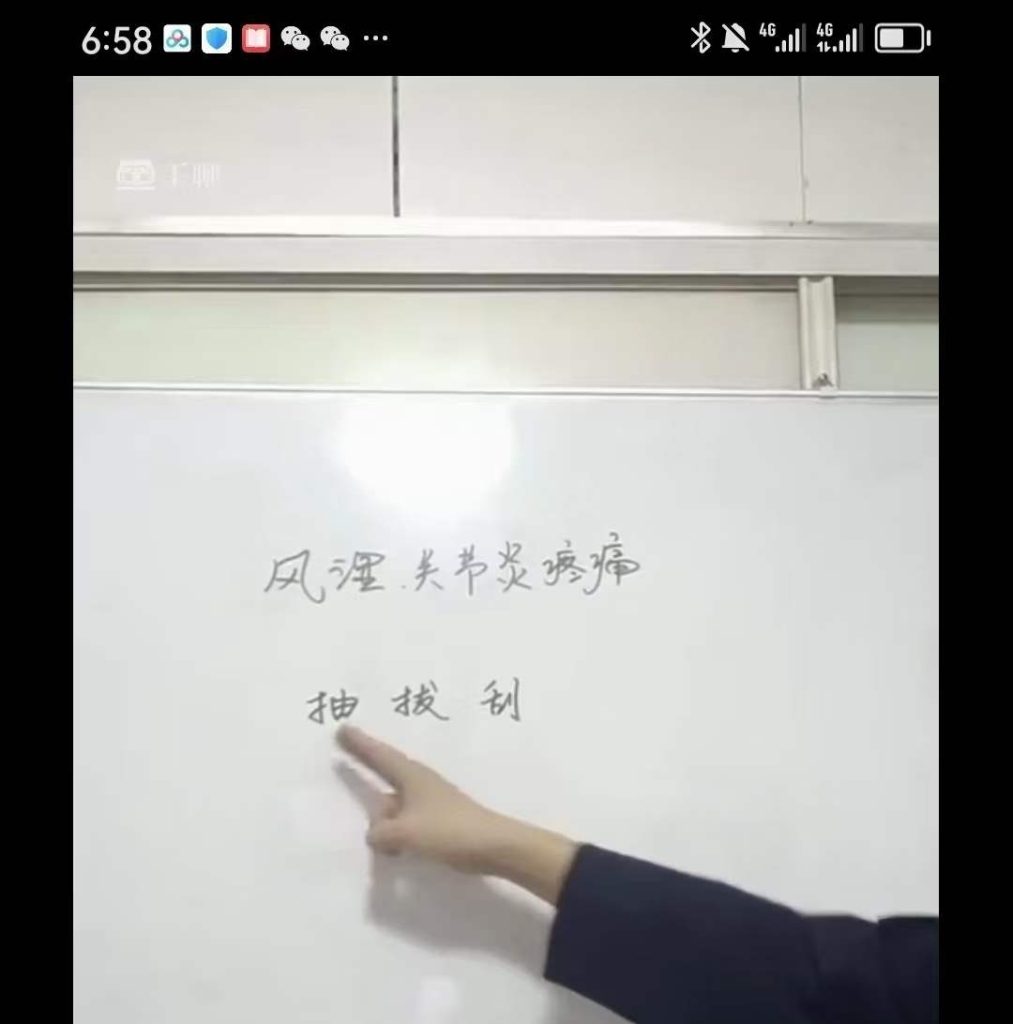 6:58
4G 4G
风湿.关节炎疼痛
抽 拔 刮